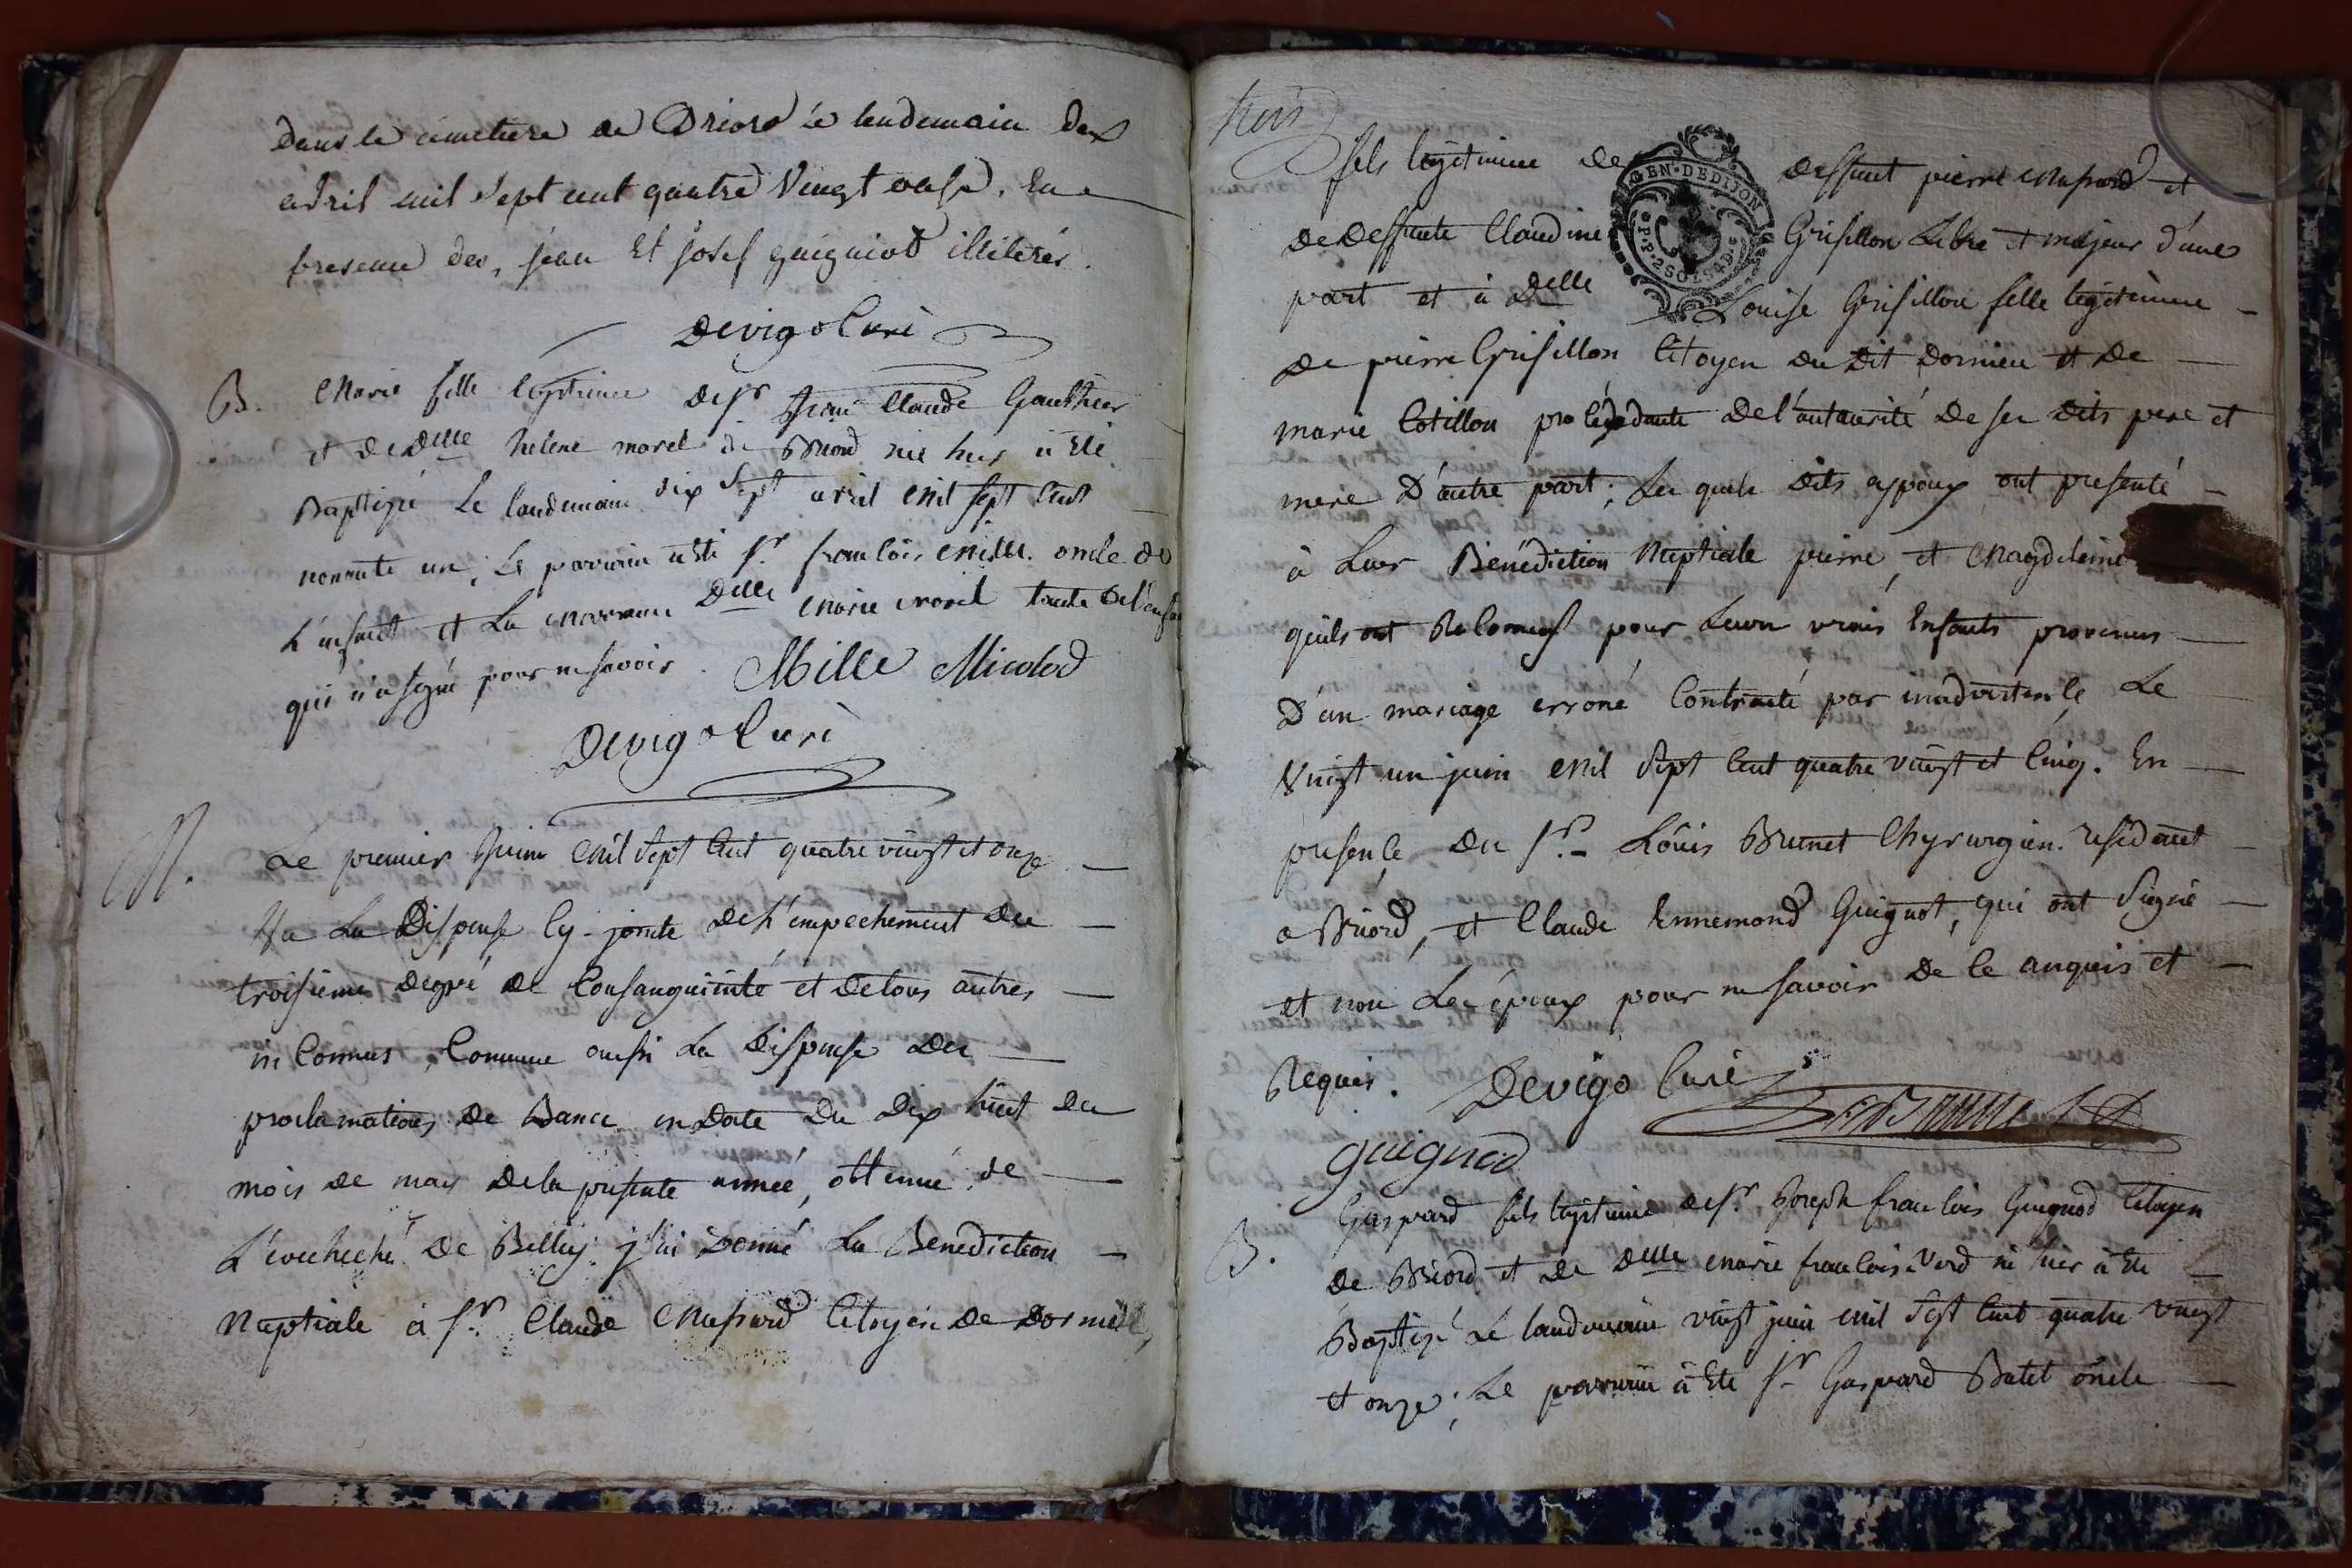 dans le cimetiere de Briord le lendemain deux
avril mil sept cent quatre vingt onse. En
presence des, jean Et josef guigniod illiterés.
Devigo Curé
B. Marie fille legitime de sr Jean Claude Gauthier
et de Delle helene morel de Briord née hier à Eté
Baptizé Le landemain dix sept avril mil sept Cent
nonante un; Le parrain a Eté sr. francois mille oncle de
L'enfant et La marraine Delle marie morel tante de l'enfan
qui n'a signé pour ne savoir. Mille Micolod
Devigo Curé
M. Le premier Juin mil sept Cent quatre vingt et onze
Vu La Dispense Cy-jointe de L'empechement du
troisieme degré de Consanguinité et de tous autres
in Connus, Comme aussi La Dispense des
proclamations de Bancs en Date Du Dix huit du
mois de mars de la presente année, obtenue de
L'eveheché De Belley. j'ai donné La Benediction
Nuptiale à sr. Claude Citoyen de Dornieu,
trois
fils legitime de deffunt pierre et
de deffunte Claudine Grisillon Libre et majeur d'une
part et à Delle Louise Grisillon fille legitime
GEN. DE DIJON
2 SOLS 4 D.
De pierre Grisillon Citoyen du Dit Dornieu et De
marie Cotillon procédante de l'autaurité De ses Dits pere et
mere D'autre part; Les quels Dits appoux ont presenté
à Leur Bénédiction Nuptiale pierre, et Magdeleine
quils ont Reconnus pour Leurs vrais Enfants provenus
D'un mariage erroné Contracté par inadvertence Le
Vingt un juin mil sept Cent quatre vingt et Cinq. En
presence du sr. Loûis Brunet Chyrurgien residant
a Briord, et Claude Ennemond Guignot, qui ont signé
et non Les époux pour ne savoir De Ce anquis et
Requis. Devigo Curé
Brunet
guignod
B. Gaspard fils legitime de sr. Joseph francois Guignod Citoyen
de Briord et de Delle marie francoise Verd né hier à Eté
Baptizé Le landemain vingt juin mil sept Cent quatre vingt
et onze; Le parrain à Eté sr Gaspard Batet oncle